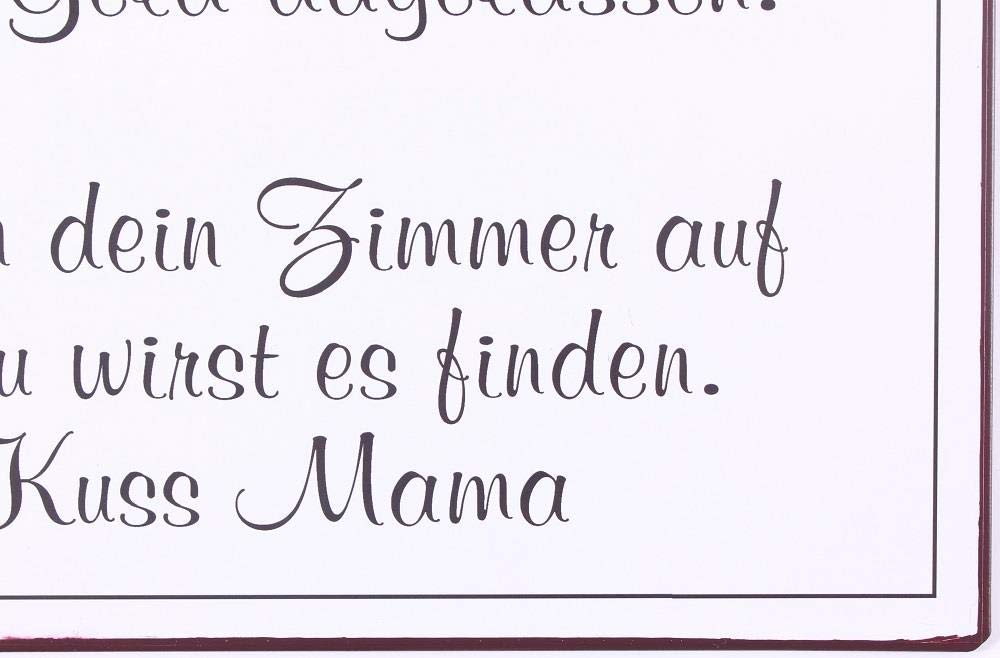 dein Zimmer auf
wirst es finden.
Kuss Mama